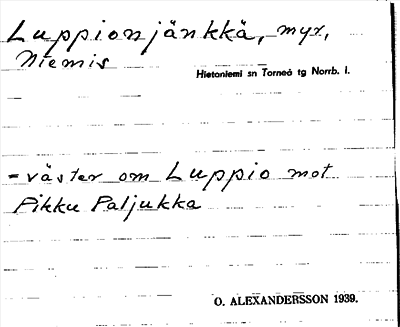 Luppionjänkkä, myr,
Niemis
Hietaniemi sn Torneå tg Norrb. l.
- väster om Luppio mot
Pikku Paljukka
O. ALEXANDERSSON 1939.